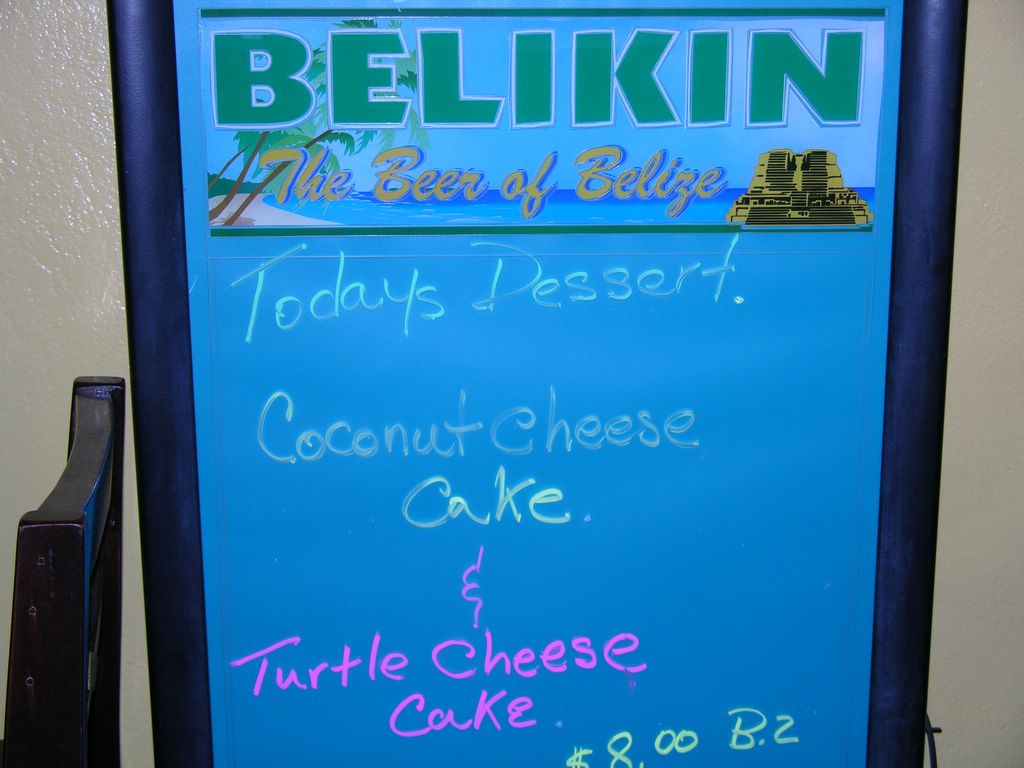 BELIKIN
The Beer of Belize
Todays Dessert.
Coconut Cheese
Cake.
&
Turtle Cheese
Cake.
$8.00 B.Z